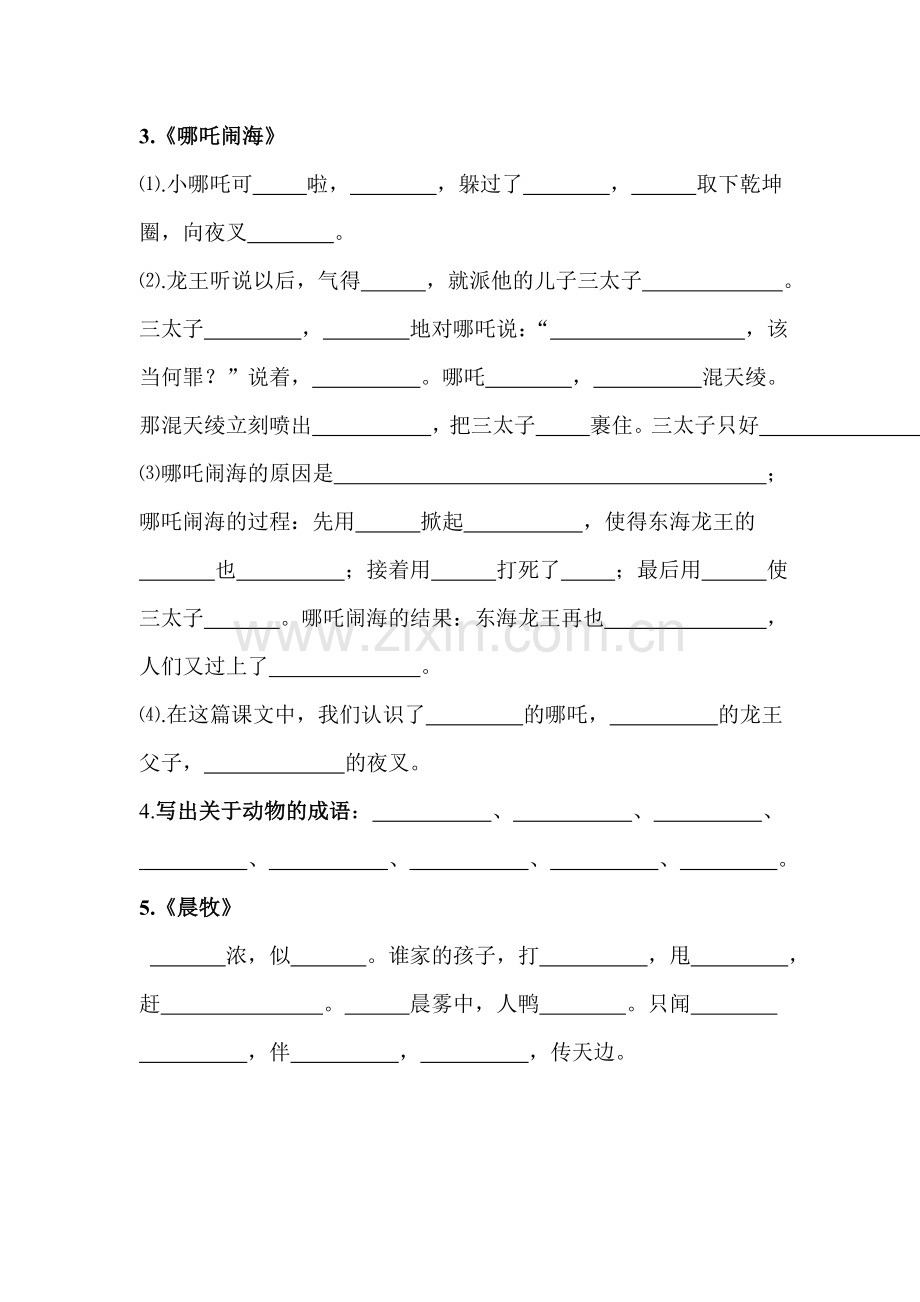 3.《哪吒闹海》
⑴.小哪吒可_____啦，________，躲过了________，______取下乾坤
圈，向夜叉________。
⑵.龙王听说以后，气得______，就派他的儿子三太子_____________。
三太子_________，________地对哪吒说：“__________________，该
当何罪？”说着，__________。哪吒________，__________混天绫。
那混天绫立刻喷出___________，把三太子_____裹住。三太子只好_______________
⑶哪吒闹海的原因是________________________________________；
哪吒闹海的过程：先用______掀起___________，使得东海龙王的
_______也__________；接着用______打死了_____；最后用______使
三太子_______。哪吒闹海的结果：东海龙王再也_______________，
人们又过上了______________。
⑷.在这篇课文中，我们认识了_________的哪吒，__________的龙王
父子，_____________的夜叉。
4.写出关于动物的成语：___________、___________、__________、
__________、___________、___________、__________、_________。
5.《晨牧》
_______浓，似_______。谁家的孩子，打__________，甩_________，
赶_______________。______晨雾中，人鸭________。只闻________
__________，伴__________，__________，传天边。
www.zixin.com.cn